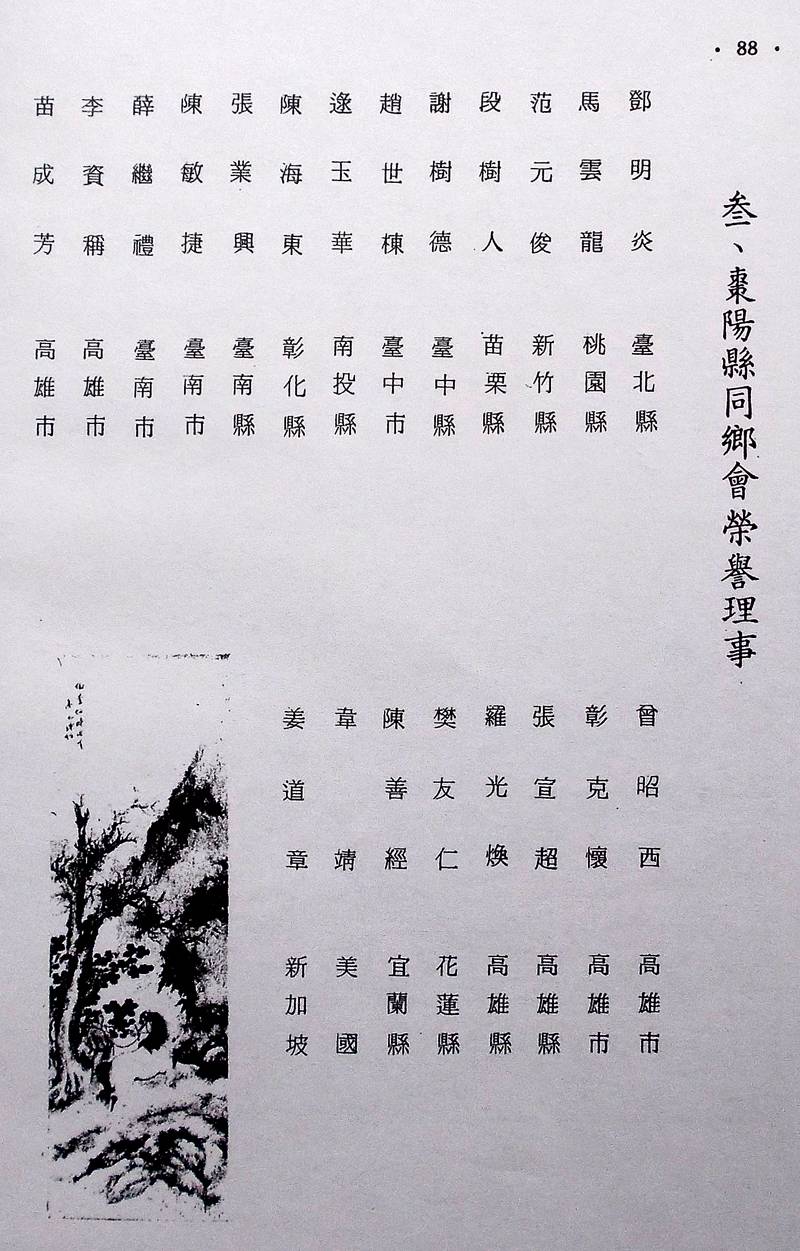 • 88 •
叁、棗陽縣同鄉會榮譽理事
鄧明炎 臺北縣
馬雲龍 桃園縣
范元俊 新竹縣
段樹人 苗栗縣
謝樹德 臺中縣
趙世棟 臺中市
逯玉華 南投縣
陳海東 彰化縣
張業興 臺南縣
陳敏捷 臺南市
薛繼禮 臺南市
李資稱 高雄市
苗成芳 高雄市
曾昭西 高雄市
彰克懷 高雄市
張宣超 高雄縣
羅光煥 高雄縣
樊友仁 花蓮縣
陳善經 宜蘭縣
韋靖 美國
姜道章 新加坡